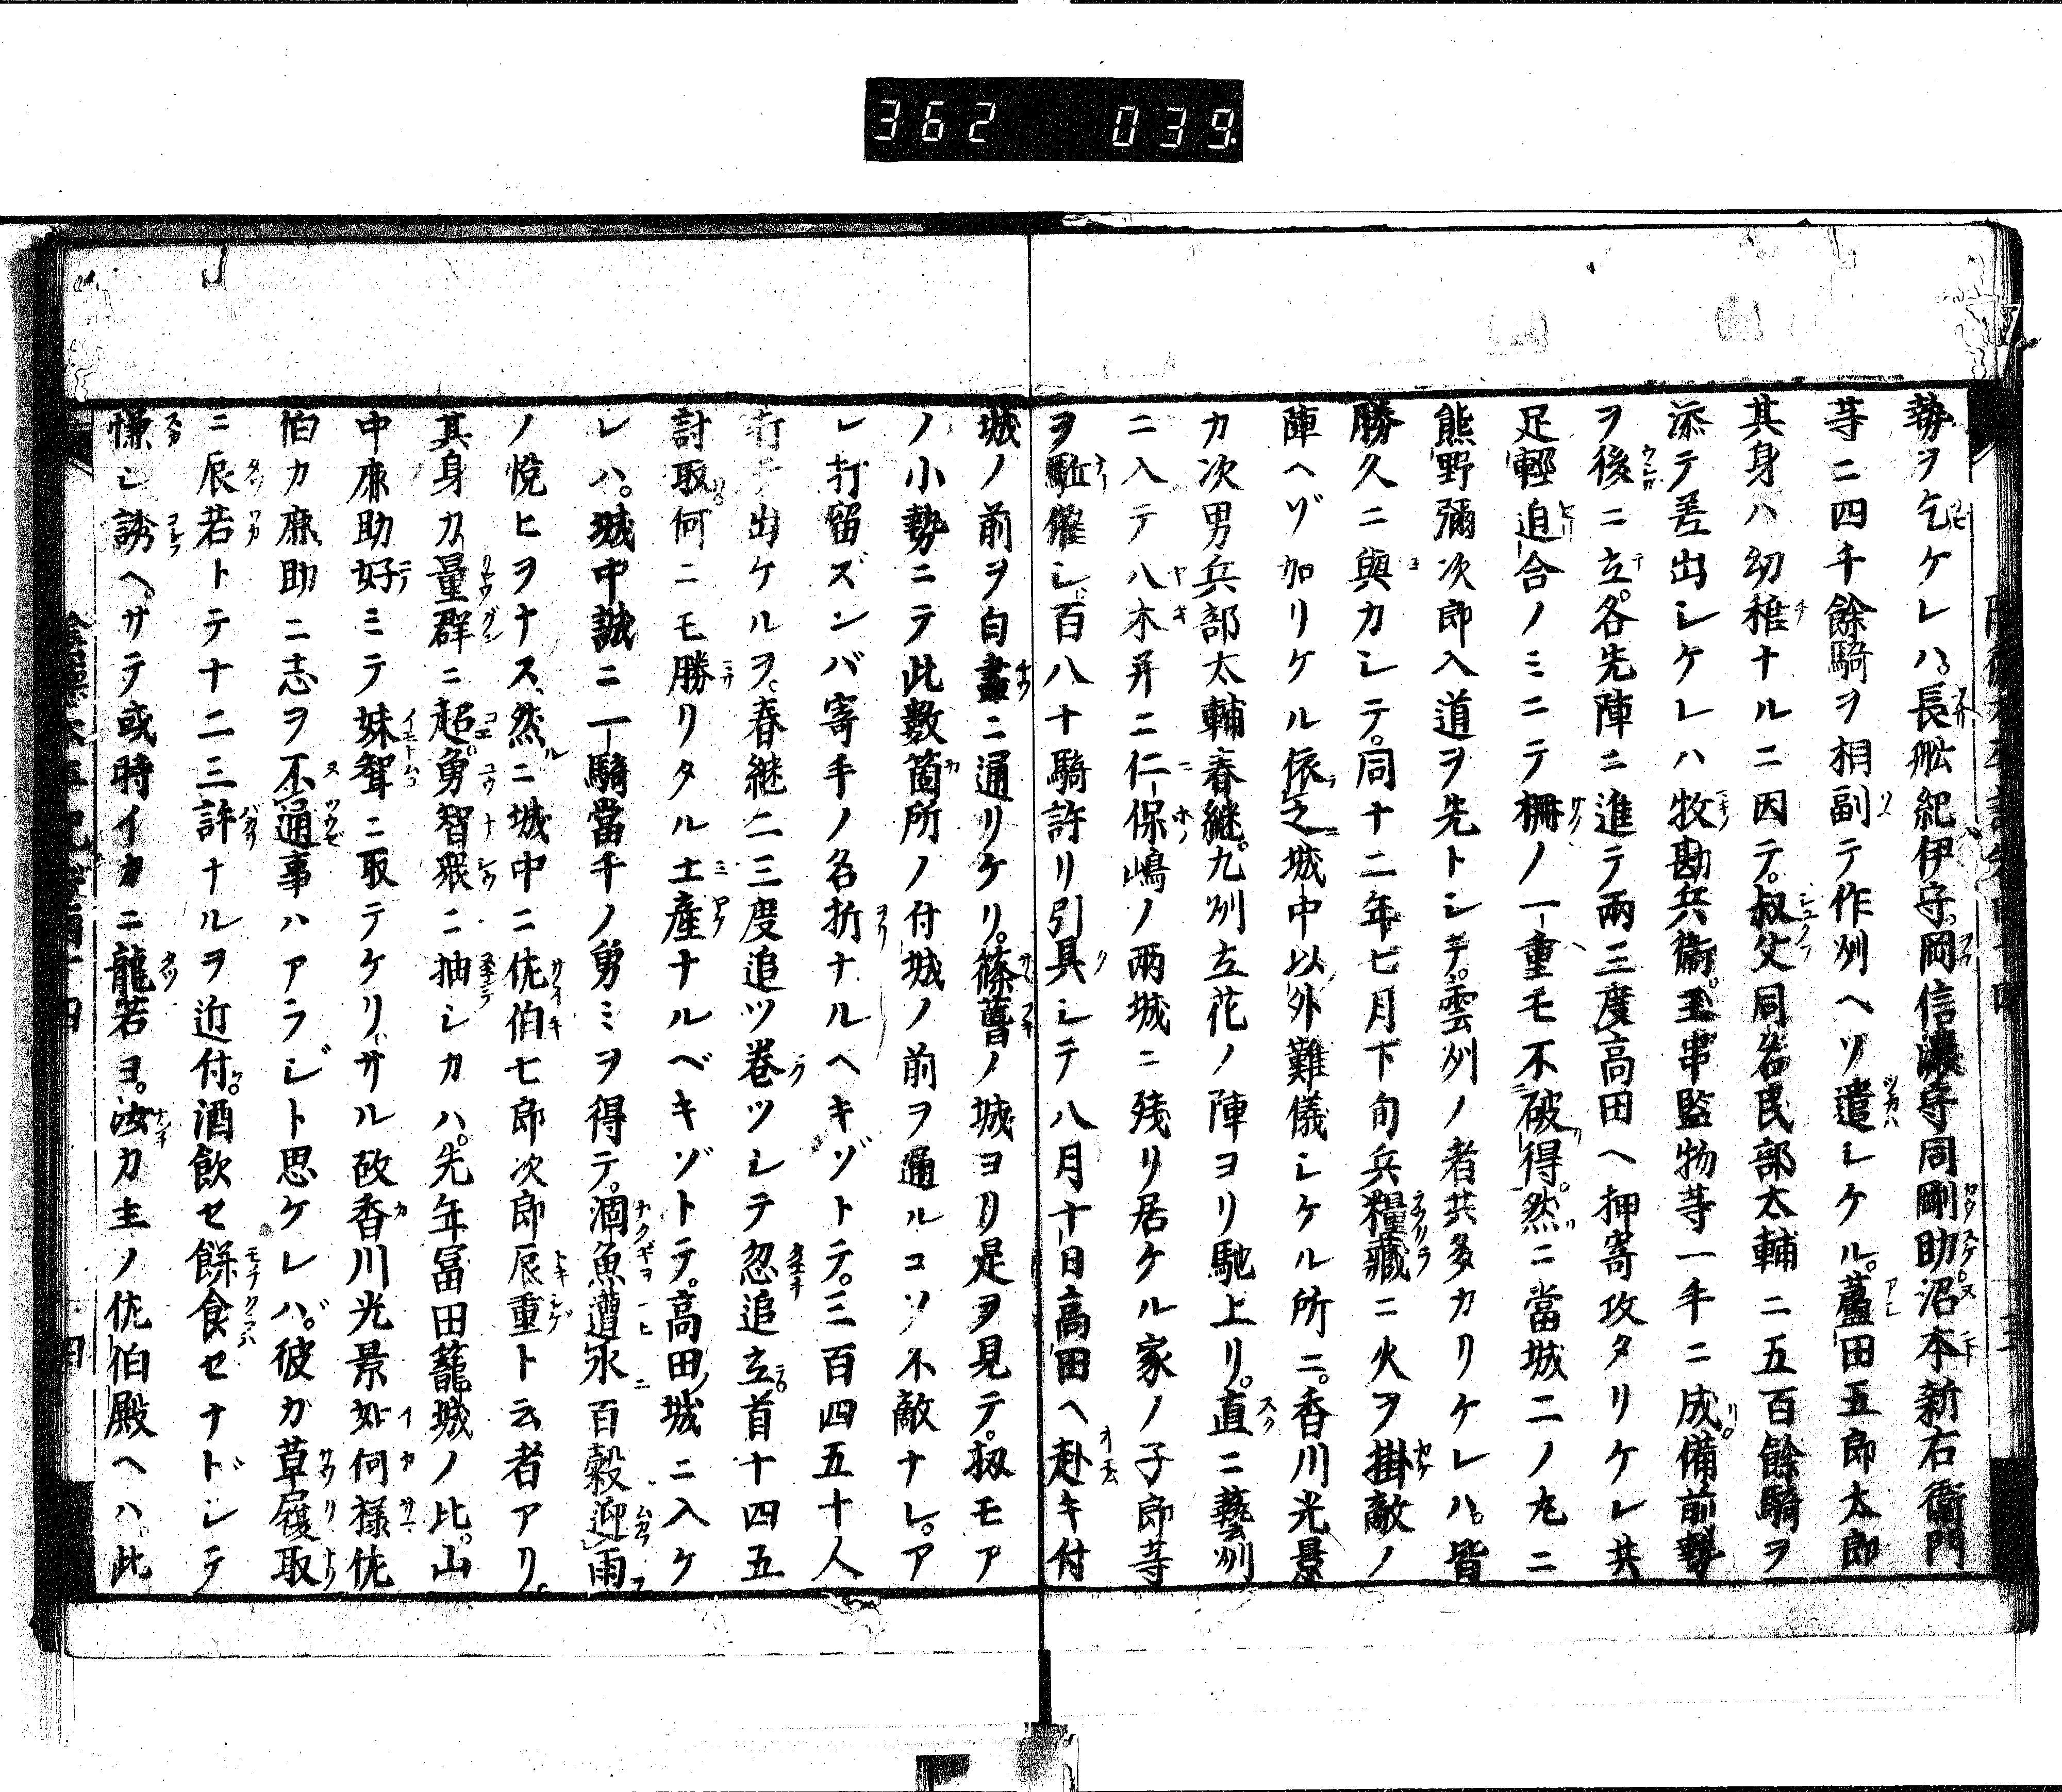 362 039
勢ヲ乞ケレハ。長舩紀伊守。岡信濃守同剛助沼本新右衞門
等ニ四千餘騎ヲ相副テ作州ヘソ遣シケル。蘆田五郎太郎
其身ハ幼稚ナルニ因テ。叔父同名民部太輔ニ五百餘騎ヲ
添テ差出シケレハ牧勘兵衞。玉串監物等一手ニ成。備前勢
ヲ後ニ立。各先陣ニ進テ兩三度高田ヘ押寄攻タリケレ共
足輕迫合ノミニテ柵ノ一重モ不破得。然ニ當城二ノ丸ニ
熊野彌次郎入道ヲ先トシテ。雲州ノ者共多カリケレハ。皆
勝久ニ與カシテ。同十二年七月下旬兵糧藏ニ火ヲ掛敵ノ
陣ヘゾ加リケル依之城中以外難儀シケル所ニ。香川光景
カ次男兵部太輔春継。九州立花ノ陣ヨリ馳上リ。直ニ藝州
ニ入テ八木并ニ仁保嶋ノ兩城ニ残リ居ケル家ノ子郎等
ヲ駈催シ。百八十騎許リ引具シテ八月十日高田ヘ赴キ付
城ノ前ヲ白晝ニ通リケリ。篠葺ノ城ヨリ是ヲ見テ。扨モア
ノ小勢ニテ此數箇所ノ付城ノ前ヲ通ルコソ不敵ナレ。ア
レ打留ズンバ寄手ノ名折ナルヘキゾトテ。三百四五十人
打テ出ケルヲ。春継二三度追ツ巻ツシテ忽追立首十四五
討取。何ニモ勝リタル土產ナルベキゾトテ。高田ノ城ニ入ケ
レハ。城中誠ニ一騎當千ノ勇ミヲ得テ。涸魚遭水百穀迎雨
ノ悅ヒヲナス、然ニ城中ニ佐伯七郎次郎辰重ト云者アリ。
其身カ量群ニ超。勇智衆ニ抽シカハ。先年冨田籠城ノ比。山
中鹿助好ミテ妹聟ニ取テケリ、サル故香川光景如何樣佐
伯カ鹿助ニ志ヲ不通事ハアラジト思ケレバ。彼カ草履取
ニ辰若トテ十二三許ナルヲ近付。酒飲セ餅食セナドシテ
慊シ誘ヘ。サテ或時イカニ龍若ヨ。汝カ主ノ佐伯殿ヘハ此